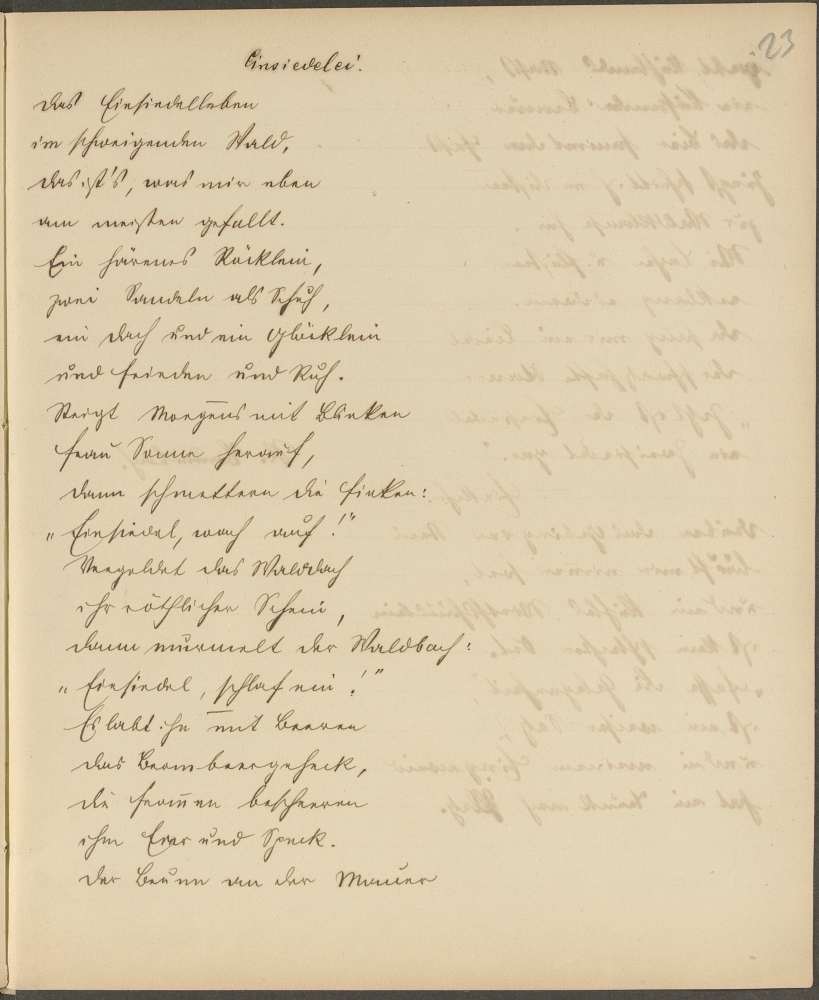 23
Einsiedelei.
Das Einsiedelleben
im schweigenden Wald,
das ist's, was mir eben
am meisten gefallt.
Ein härenes Röcklein,
zwei Sandeln als Schuh,
ein Dach und ein Glöcklein
und Frieden und Ruh.
Steigt Morgens mit Blinken
Frau Sonne herauf,
dann schmettern die Finken:
„Einsiedel, wach auf!"
Vergoldet das Walddach
ihr röthlicher Schein,
dann murmelt der Waldbach:
„Einsiedel, schlaf ein!"
Es labt ihn mit Beeren
das Brombeergeheck,
die from̄en bescheeren
ihm Eier und Speck.
Der Brunn an der Mauer